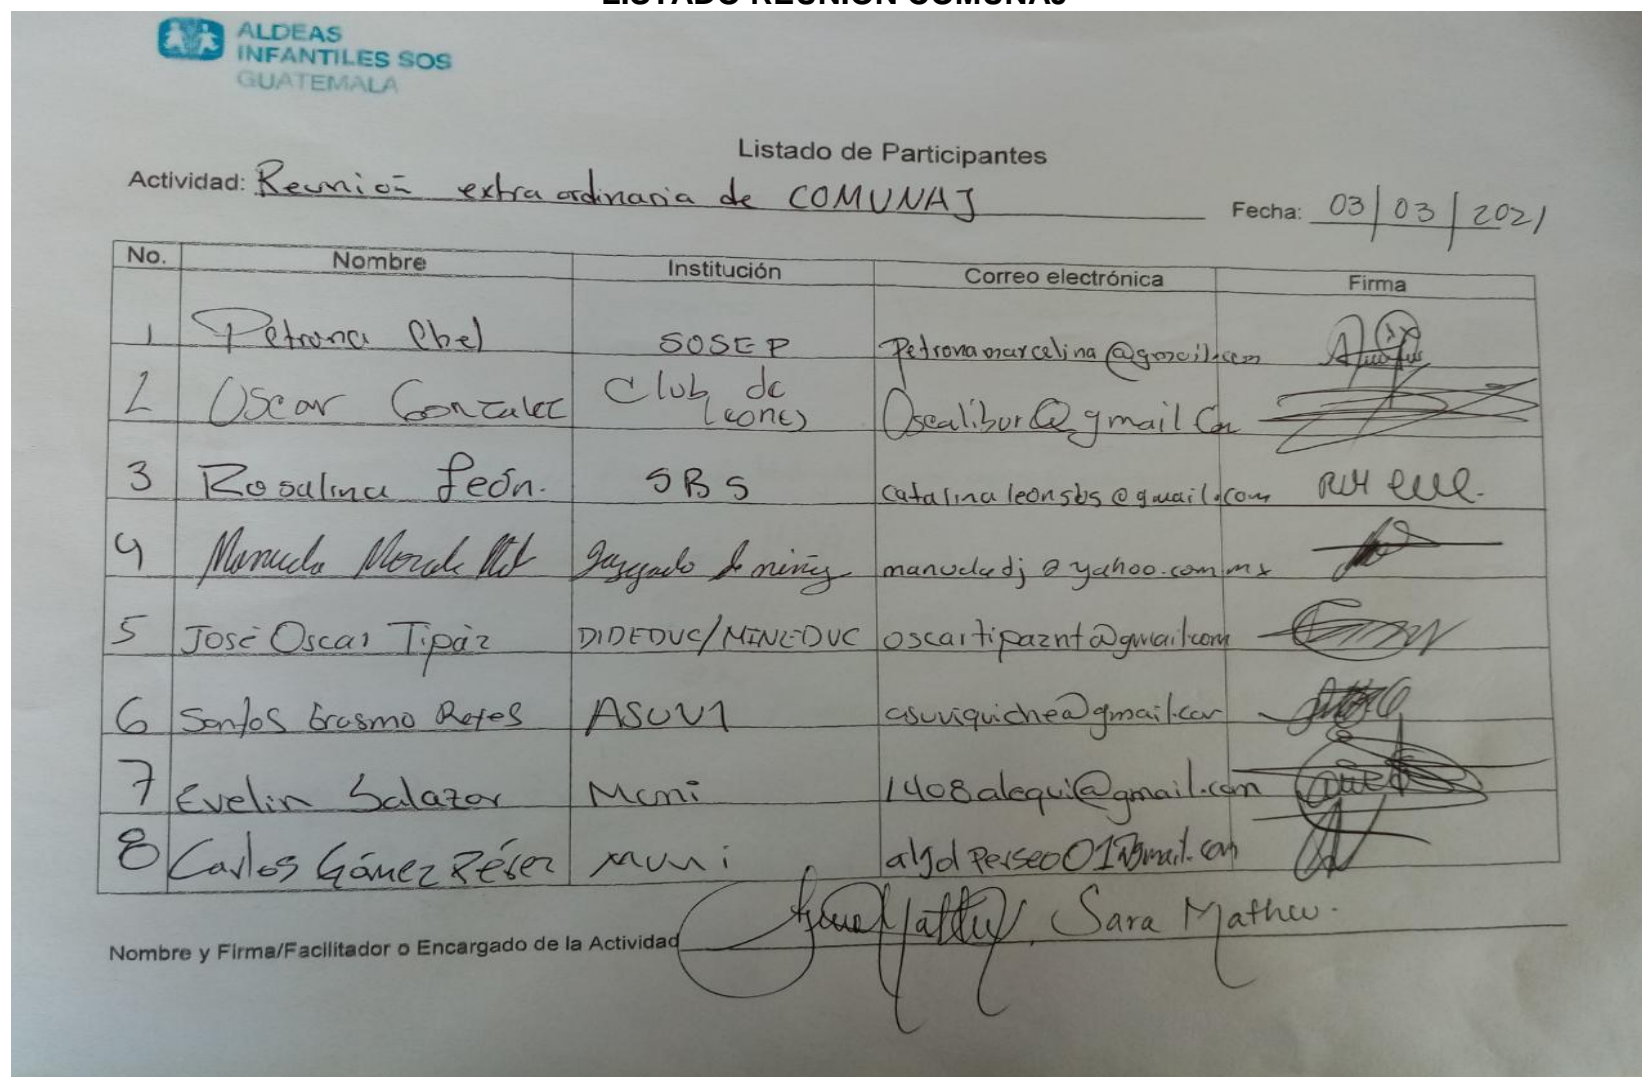 LISTADO REUNIÓN COMUNAJ
ALDEAS
INFANTILES SOS
GUATEMALA
Listado de Participantes
Actividad: Reunión extra ordinaria de COMUNAJ
Fecha: 03/03/2021
No. Nombre Institución Correo electrónica Firma
1 Petrona Chel SOSEP Petronamarcelina@gmail.com
2 Oscar Gonzalez Club de Leones Oscalibur@gmail.Com
3 Rosalina León. SBS catalinaleonsbs@gmail.com
4 Manuela Juzgado de niñez manueladj@yahoo.com.mx
5 José Oscar Tipáz DIDEDUC/MINEDUC oscartipaznt@gmail.com
6 Santos Erasmo Reyes ASUVI asuviquiche@gmail.com
7 Evelin Salazar Muni 1408alequi@gmail.com
8 Carlos Gámez Pérez muni algolperseo01@gmail.com
Nombre y Firma/Facilitador o Encargado de la Actividad Sara Matheu.